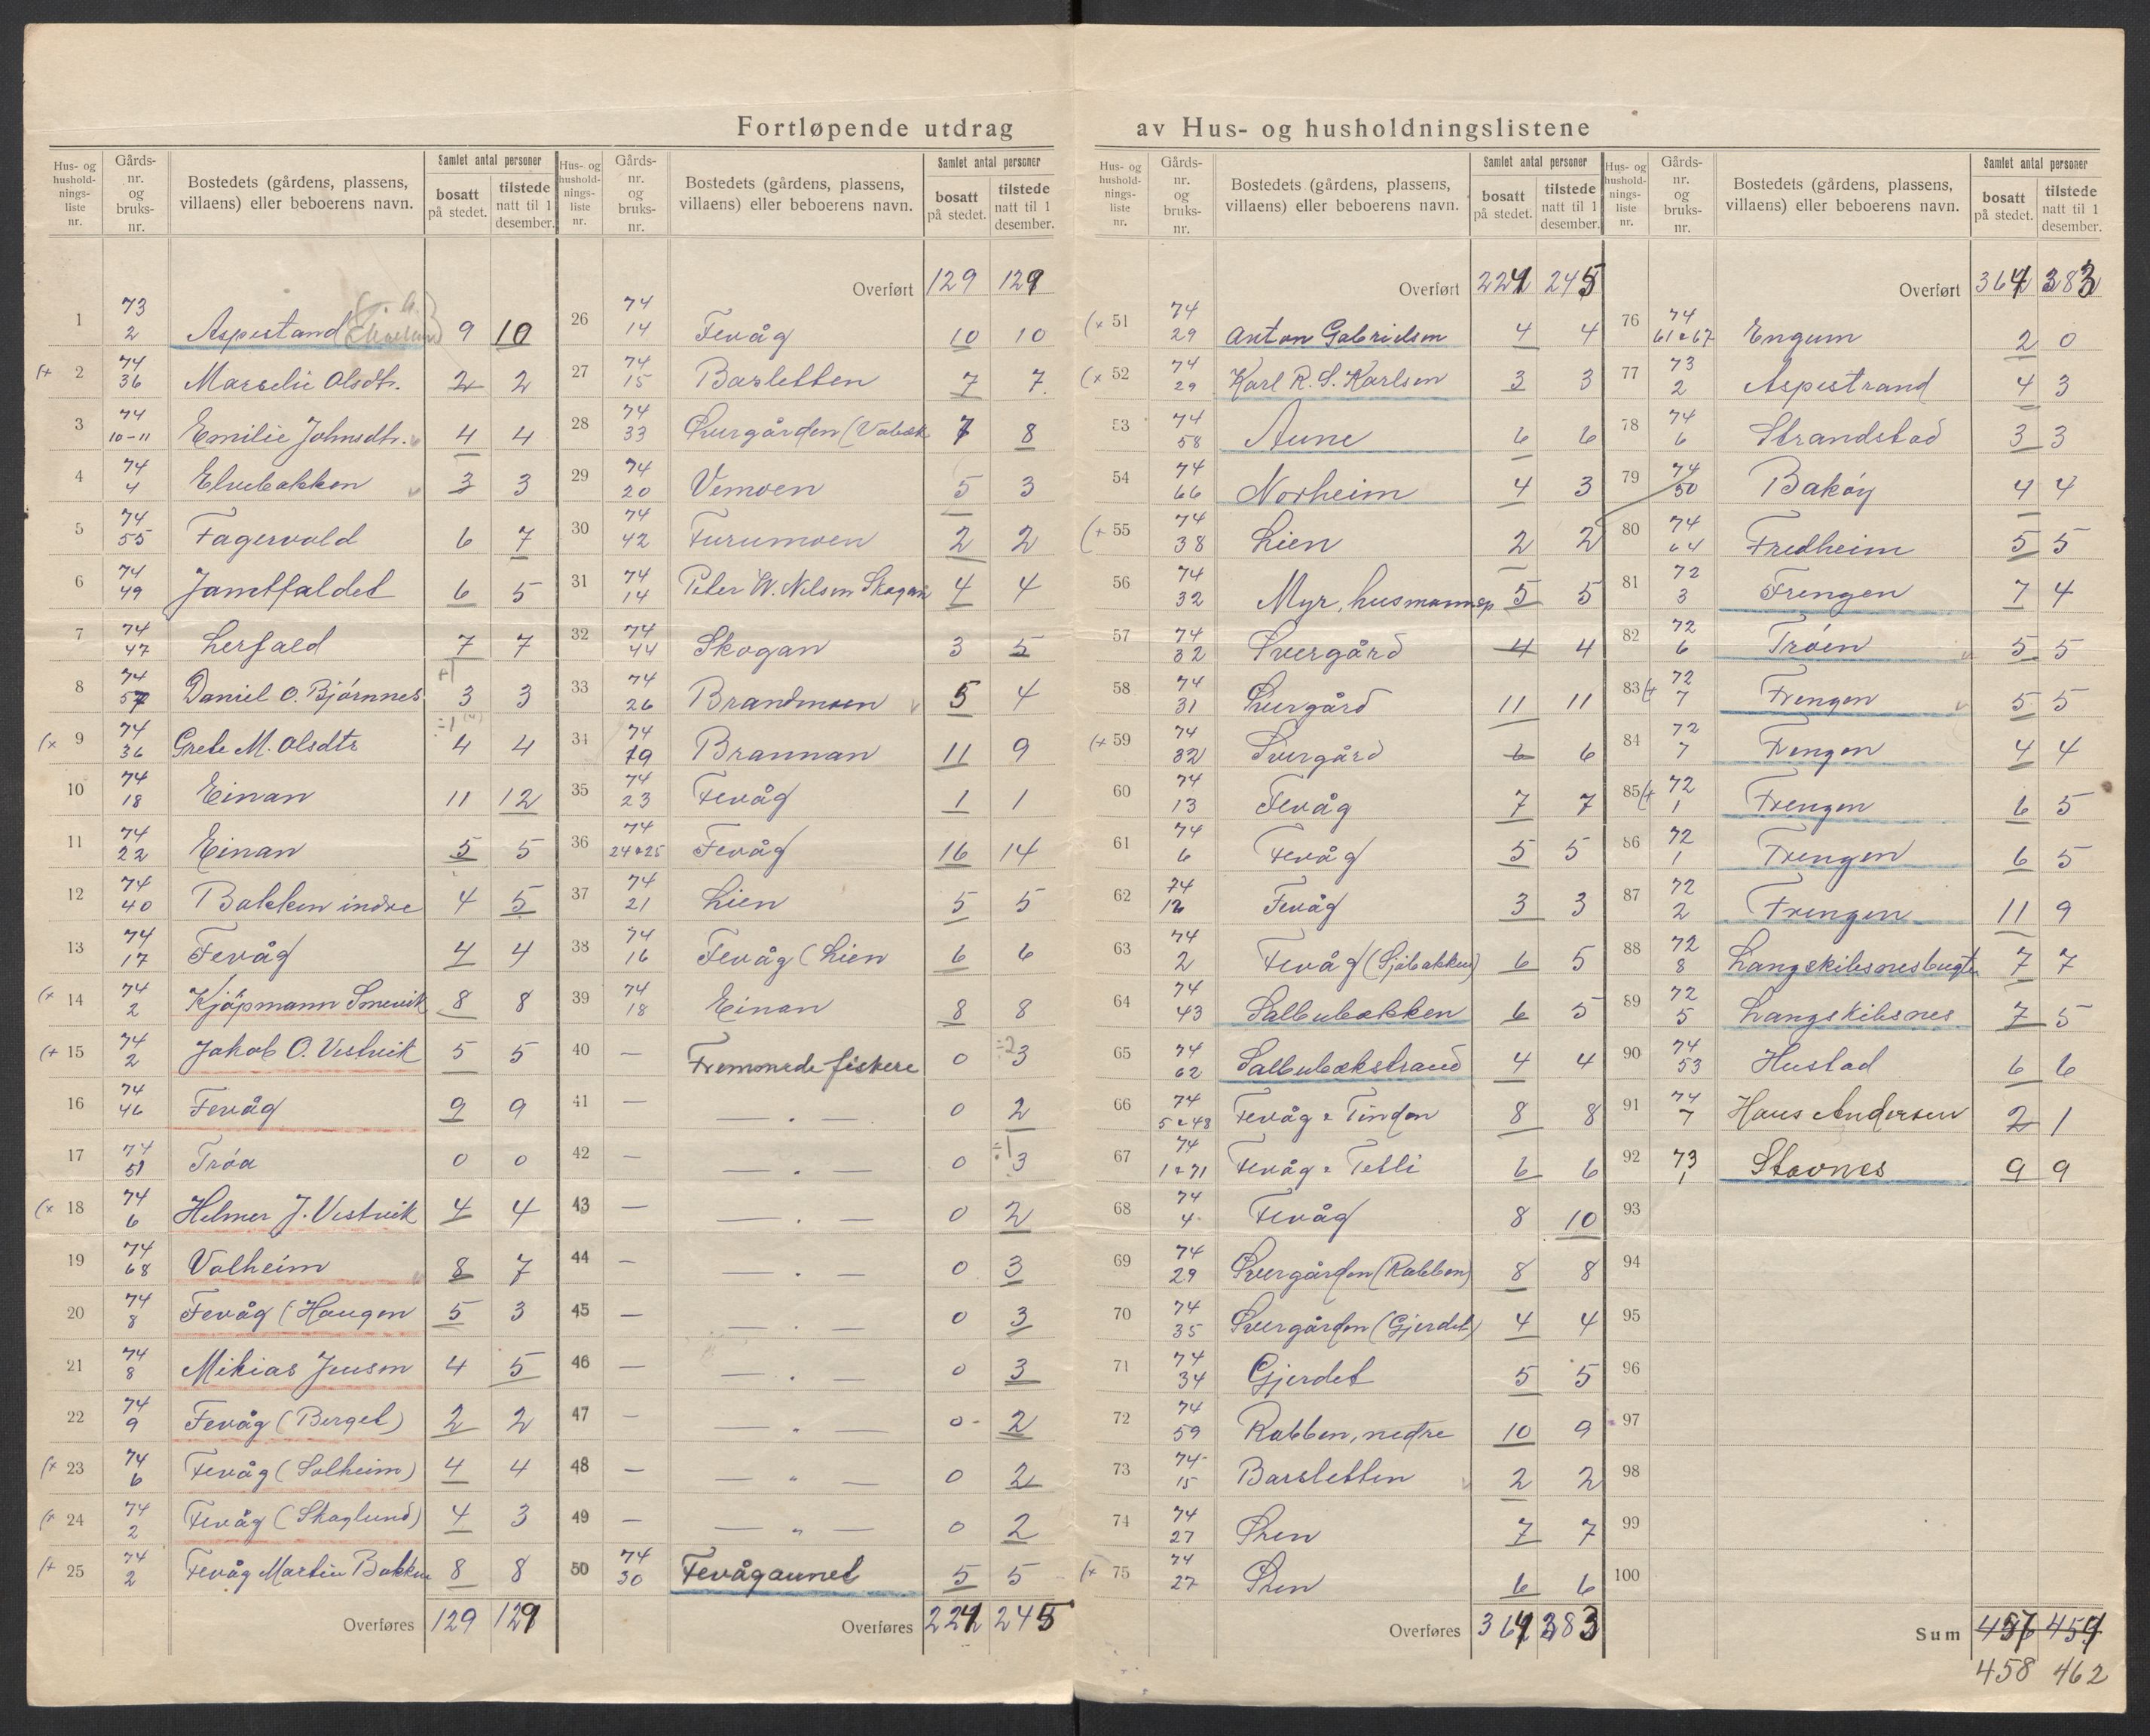 Fortløpende utdrag av Hus- og husholdningslistene
Hus- og husholdningsliste nr. | Gårds-nr. og bruks-nr. | Bostedets (gårdens, plassens, villaens) eller beboerens navn. | Samlet antal personer | bosatt på stedet. | tilstede natt til 1 desember.
1 73 2 Aspestand 9 10
(+ 2 74 36 Marselie Olsdtr. 2 2
3 74 10-11 Emilie Johnsdtr. 4 4
4 74 4 Elvebakken 3 3
5 74 55 Fagervold 6 7
6 74 49 Jamtfaldet 6 5
7 74 47 Lerfald 7 7
8 74 57 Daniel O. Bjørnnes 3 3
(x 9 74 36 Grete M. Olsdtr 4 4
10 74 18 Einan 11 12
11 74 22 Einan 5 5
12 74 40 Bakken indre 4 5
13 74 17 Fevåg 4 4
(x 14 74 2 Kjøpmann Smevik 8 8
(+ 15 74 2 Jakob O. Vestvik 5 5
16 74 46 Fevåg 9 9
17 74 51 Trøa 0 0
(x 18 74 6 Helmer J. Vestvik 4 4
19 74 68 Valheim 8 7
20 74 8 Fevåg (Haugen 5 3
21 74 8 Mikias Jensen 4 5
22 74 9 Fevåg (Berget) 2 2
(x 23 74 6 Fevåg (Solheim) 4 4
(x 24 74 2 Fevåg (Skoglund) 4 3
(+ 25 74 2 Fevåg Martin Bakken 8 8
Overføres 129 129
Overført 129 129
26 74 14 Fevåg 10 10
27 74 15 Barsletten 7 7
28 74 33 Svergården (Vabæk 7 8
29 74 20 Vemoen 5 3
30 74 42 Furumoen 2 2
31 74 14 Peter W. Nilsen Skogan 4 4
32 74 44 Skogan 3 5
33 74 26 Brandmoen 5 4
34 74 19 Brannan 11 9
35 74 23 Fevåg 1 1
36 74 24 & 25 Fevåg 16 14
37 74 21 Lien 5 5
38 74 16 Fevåg (Lien 6 6
39 74 18 Einan 8 8
40 — Fremmede fiskere 0 ÷2 3
41 — — . — 0 2
42 — — . — 0 ÷1 3
43 — — . — 0 2
44 — — . — 0 3
45 — — . — 0 3
46 — — . — 0 3
47 — — „ — 0 2
48 — — „ — 0 2
49 — — „ — 0 2
50 74 30 Fevågaunet 5 5
Overføres 224 245
Overført 224 245
(x 51 74 29 Anton Gabrielsen 4 4
(x 52 74 29 Karl R. S. Karlsen 3 3
53 74 58 Aune 6 6
54 74 66 Norheim 4 3
(+ 55 74 38 Lien 2 2
56 74 32 Myr, husmannsp 5 5
57 74 32 Svergård 4 4
58 74 31 Svergård 11 11
(+ 59 74 32 Svergård 6 6
60 74 13 Fevåg 7 7
61 74 6 Fevåg 5 5
62 74 12 Fevåg 3 3
63 74 2 Fevåg (Sjøbakken) 6 5
64 74 43 Salbubækken 6 5
65 74 62 Salbubækstrand 4 4
66 74 5 & 48 Fevåg & Tindan 8 8
67 74 1 & 71 Fevåg & Tetli 6 6
68 74 4 Fevåg 8 10
69 74 29 Svergården (Rabben) 8 8
70 74 35 Svergården (Gjerdet) 4 4
71 74 34 Gjerdet 5 5
72 74 59 Rabben, nedre 10 9
73 74 15 Barsletten 2 2
74 74 27 Øren 7 7
(+ 75 74 27 Øren 6 6
Overføres 364 383
Overført 364 383
76 74 61 & 67 Engum 2 0
77 73 2 Aspestrand 4 3
78 74 6 Strandstad 3 3
79 74 50 Bakøy 4 4
80 74 64 Fredheim 5 5
81 72 3 Frengen 7 4
82 72 6 Trøen 5 5
83 (+ 72 7 Frengen 5 5
84 72 7 Frengen 4 4
85 (+ 72 1 Frengen 6 5
86 72 1 Frengen 6 5
87 72 2 Frengen 11 9
88 72 8 Langskibsnesbugten 7 7
89 72 5 Langskibsnes 7 5
90 74 53 Hustad 6 6
91 74 7 Hans Andersen 2 1
92 73 1 Stavnes 9 9
93
94
95
96
97
98
99
100
Sum 457 459
458 462